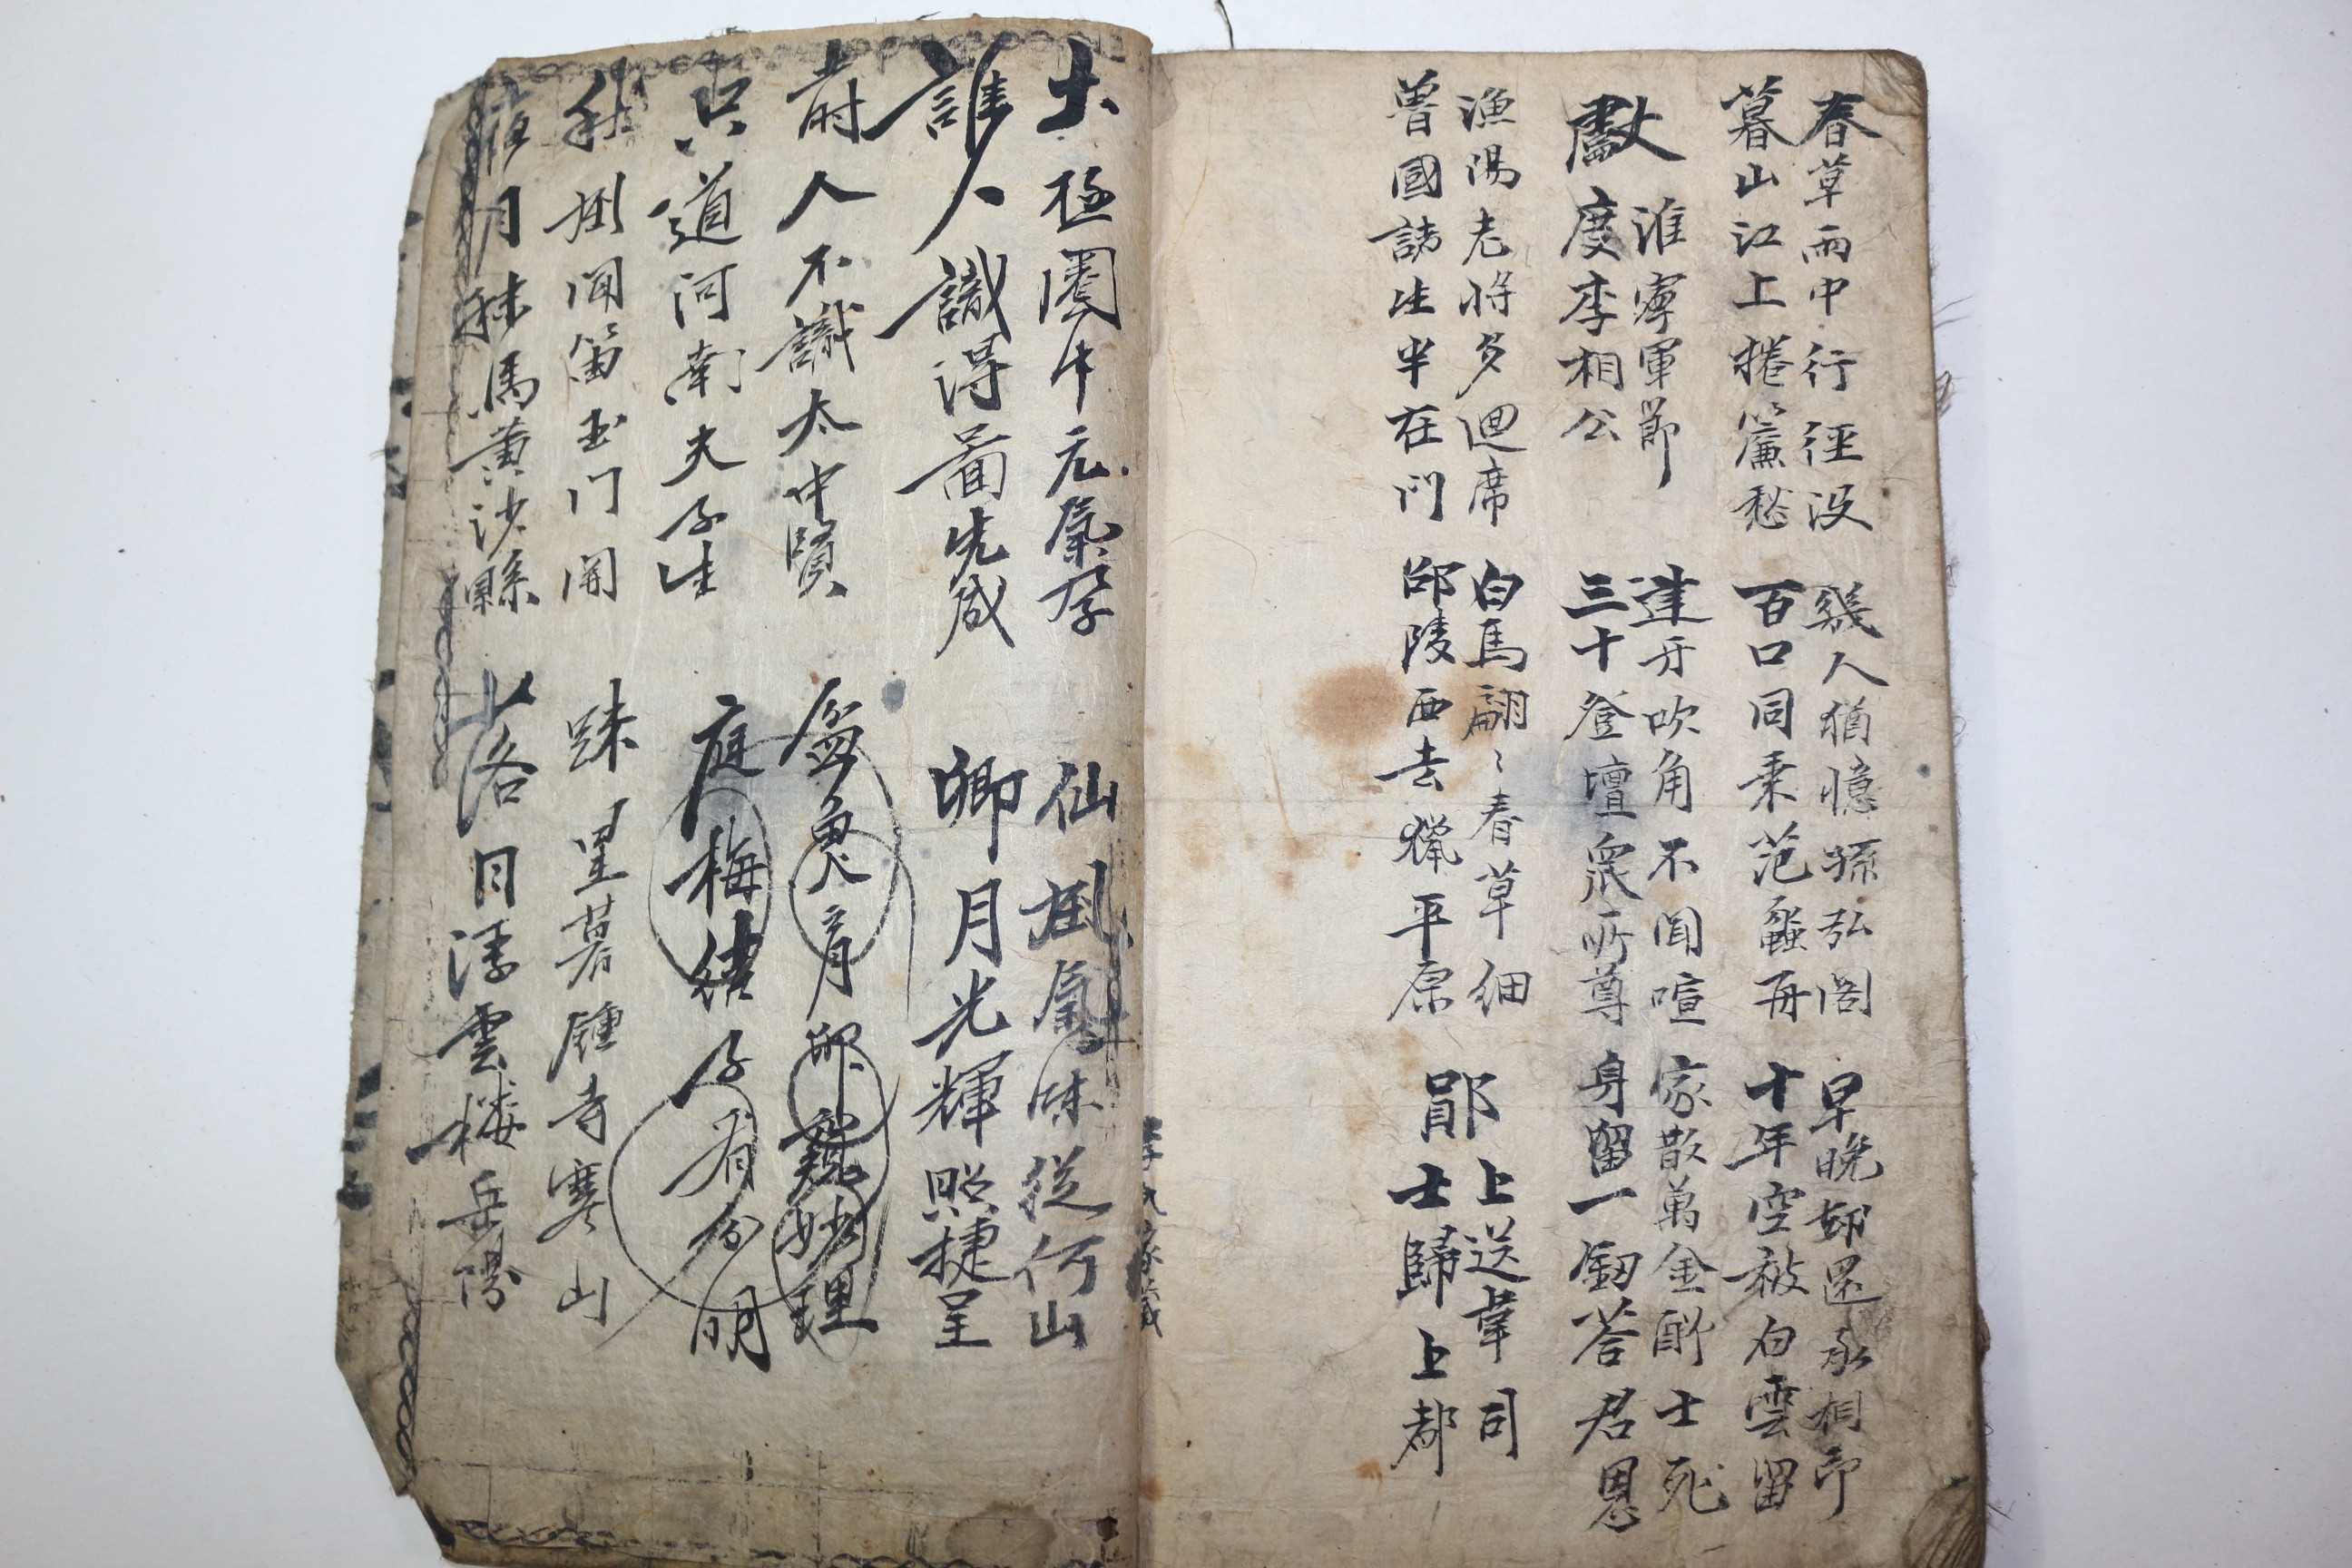 春草雨中行徑沒
暮山江上捲簾愁
幾人猶憶孫弘閣
百口同乘范蠡舟
早晩却還丞相印
十年空被白雲留
獻淮寧軍節
度李相公
建牙吹角不聞喧
三十登壇衆所尊
家散萬金酬士死
身留一劒答君恩
漁陽老將多迴席
魯國諸生半在門
白馬翩〻春草細
邵陵西去獵平原
鄖上送韋司
士歸上都
太極圈中元氣孕
誰人識得啚先成
前人不識太中賢
只道河南夫子生
秋掛聞笛玉門開
夜月秣馬黃沙縣
仙風氣味從何山
卿月光輝照捷呈
盆魚育 巍妙理
庭梅結子有分明
踈星暮鍾寺寒山
落日浮雲楼岳陽